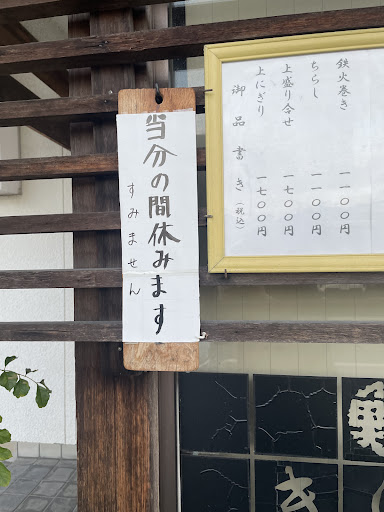 当分の間休みます
すみません
鉄火巻き 一一〇〇円
ちらし 一一〇〇円
上盛り合せ 一七〇〇円
上にぎり 一七〇〇円
御品書き（税込）